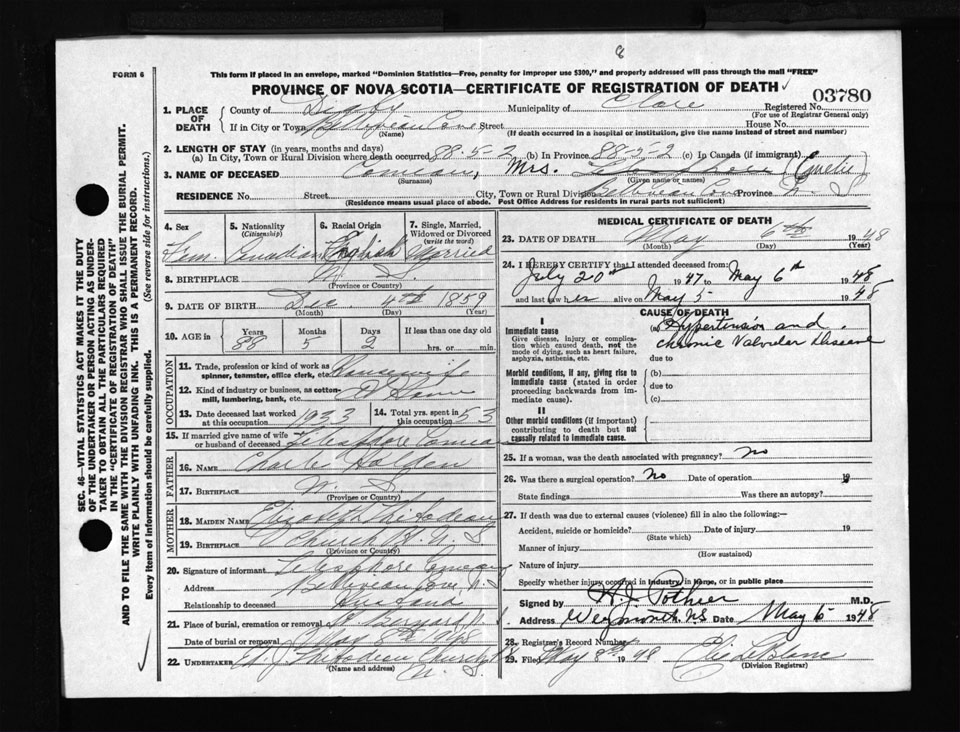 8
FORM 6
This form if placed in an envelope, marked "Dominion Statistics—Free, penalty for improper use $300," and properly addressed will pass through the mail "FREE"
PROVINCE OF NOVA SCOTIA—CERTIFICATE OF REGISTRATION OF DEATH
03780
1. PLACE OF DEATH
County of Digby Municipality of Clare Registered No.
(For use of Registrar General only)
If in City or Town Street House No.
(Name) (If death occurred in a hospital or institution, give the name instead of street and number)
2. LENGTH OF STAY (in years, months and days)
(a) In City, Town or Rural Division where death occurred 88-5-2 (b) In Province 88-5-2 (c) In Canada (if immigrant)
3. NAME OF DECEASED Comeau, Mrs. Telesphore
(Surname) (Given name or names)
RESIDENCE No. Street City, Town or Rural Division Belliveau Cove Province N. S.
(Residence means usual place of abode. Post Office Address for residents in rural parts not sufficient)
4. Sex Fem.
5. Nationality (Citizenship) Canadian
6. Racial Origin English
7. Single, Married, Widowed or Divorced (write the word) Married
8. BIRTHPLACE N. S.
(Province or Country)
9. DATE OF BIRTH Dec. 4th 1859
(Month) (Day) (Year)
10. AGE in Years Months Days If less than one day old
88 5 2 hrs. or min.
OCCUPATION
11. Trade, profession or kind of work as spinner, teamster, office clerk, etc. Housewife
12. Kind of industry or business, as cotton-mill, lumbering, bank, etc. At Home
13. Date deceased last worked at this occupation 1933
14. Total yrs. spent in this occupation 53
15. If married give name of wife or husband of deceased Telesphore Comeau
FATHER
16. NAME Charles Holden
17. BIRTHPLACE N. S.
(Province or Country)
MOTHER
18. MAIDEN NAME Elizabeth Thibodeau
19. BIRTHPLACE Church Pt. N. S.
(Province or Country)
20. Signature of informant Telesphore Comeau
Address Belliveau Cove, N. S.
Relationship to deceased Husband
21. Place of burial, cremation or removal St. Bernard, N. S.
Date of burial or removal May 8th 1948
22. UNDERTAKER Ed. J. Thibodeau Church Pt.
(Name and address) N. S.
MEDICAL CERTIFICATE OF DEATH
23. DATE OF DEATH May 6th 1948
(Month) (Day) (Year)
24. I HEREBY CERTIFY that I attended deceased from:
July 20th 1947 to May 6th 1948
and last saw her alive on May 5 1948
CAUSE OF DEATH
I
Immediate cause (a) Hypertension and
Give disease, injury or complication which caused death, not the mode of dying, such as heart failure, asphyxia, asthenia, etc.
Chronic Valvular Disease
due to
Morbid conditions, if any, giving rise to immediate cause (stated in order proceeding backwards from immediate cause).
(b)
due to
(c)
II
Other morbid conditions (if important) contributing to death but not causally related to immediate cause.
25. If a woman, was the death associated with pregnancy? No
26. Was there a surgical operation? No Date of operation 19
State findings Was there an autopsy?
27. If death was due to external causes (violence) fill in also the following:—
Accident, suicide or homicide? Date of injury 19
(State which)
Manner of injury
(How sustained)
Nature of injury
Specify whether injury occurred in industry, in home, or in public place
Signed by H. J. Pothier M.D.
Address Weymouth, NS Date May 6 1948
28. Registrar's Record Number
29. Filed May 8th 1948 Elie LeBlanc
(Division Registrar)
SEC. 46—VITAL STATISTICS ACT MAKES IT THE DUTY
OF THE UNDERTAKER OR PERSON ACTING AS UNDER-
TAKER TO OBTAIN ALL THE PARTICULARS REQUIRED
IN THE "CERTIFICATE OF REGISTRATION OF DEATH"
AND TO FILE THE SAME WITH THE DIVISION REGISTRAR WHO SHALL ISSUE THE BURIAL PERMIT.
WRITE PLAINLY WITH UNFADING INK. THIS IS A PERMANENT RECORD.
Every item of information should be carefully supplied. (See reverse side for instructions.)